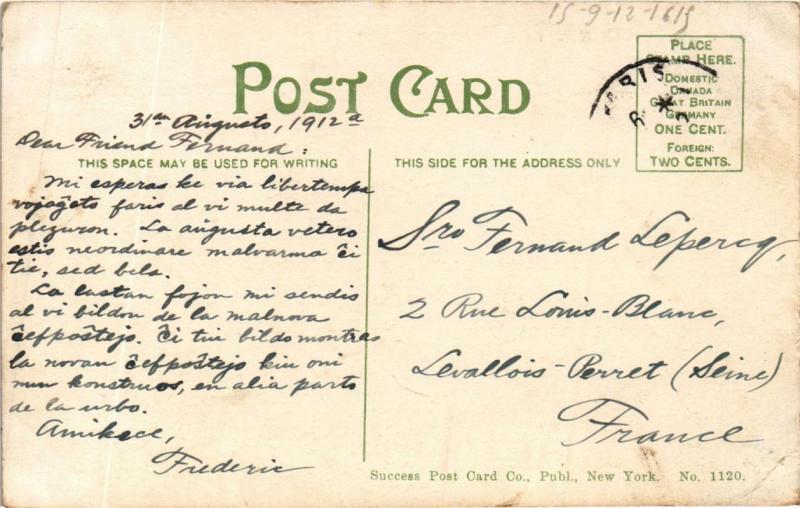 15-9-12-1615
PLACE
STAMP HERE.
DOMESTIC
CANADA
GREAT BRITAIN
GERMANY
ONE CENT.
FOREIGN:
TWO CENTS.
PARIS
POST CARD
31an Augusto, 1912a
Dear Friend Fernand:
THIS SPACE MAY BE USED FOR WRITING
THIS SIDE FOR THE ADDRESS ONLY
Mi esperas ke via libertempa
vojaĝeto faris al vi multe da
plezuron. La aŭgusta vetero
estis neordinare malvarma ĉi
tie, sed bela.
La lastan fojon mi sendis
al vi bildon de la malnova
ĉefpoŝtejo. Ĉi tiu bildo montras
la novan ĉefpoŝtejo kiu oni
nun konstruos, en alia parto
de la urbo.
Amikece,
Frederic
Sro Fernand Lepercq,
2 Rue Louis-Blanc,
Levallois-Perret (Seine)
France
Success Post Card Co., Publ., New York. No. 1120.